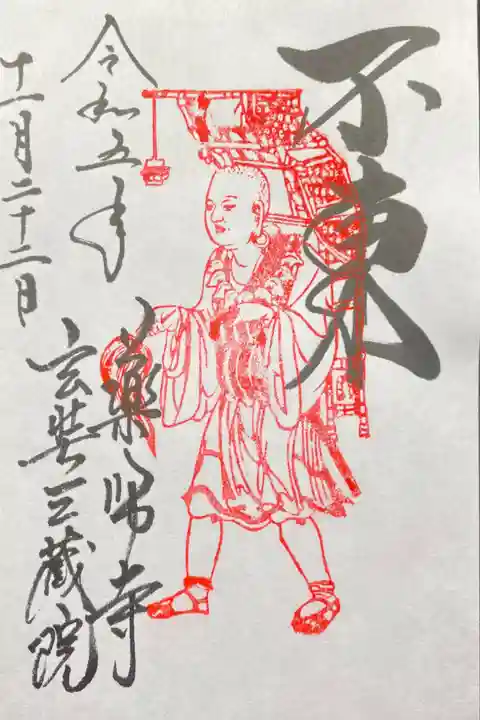 不東
薬師寺
玄奘三蔵院
令和五年
十一月二十二日